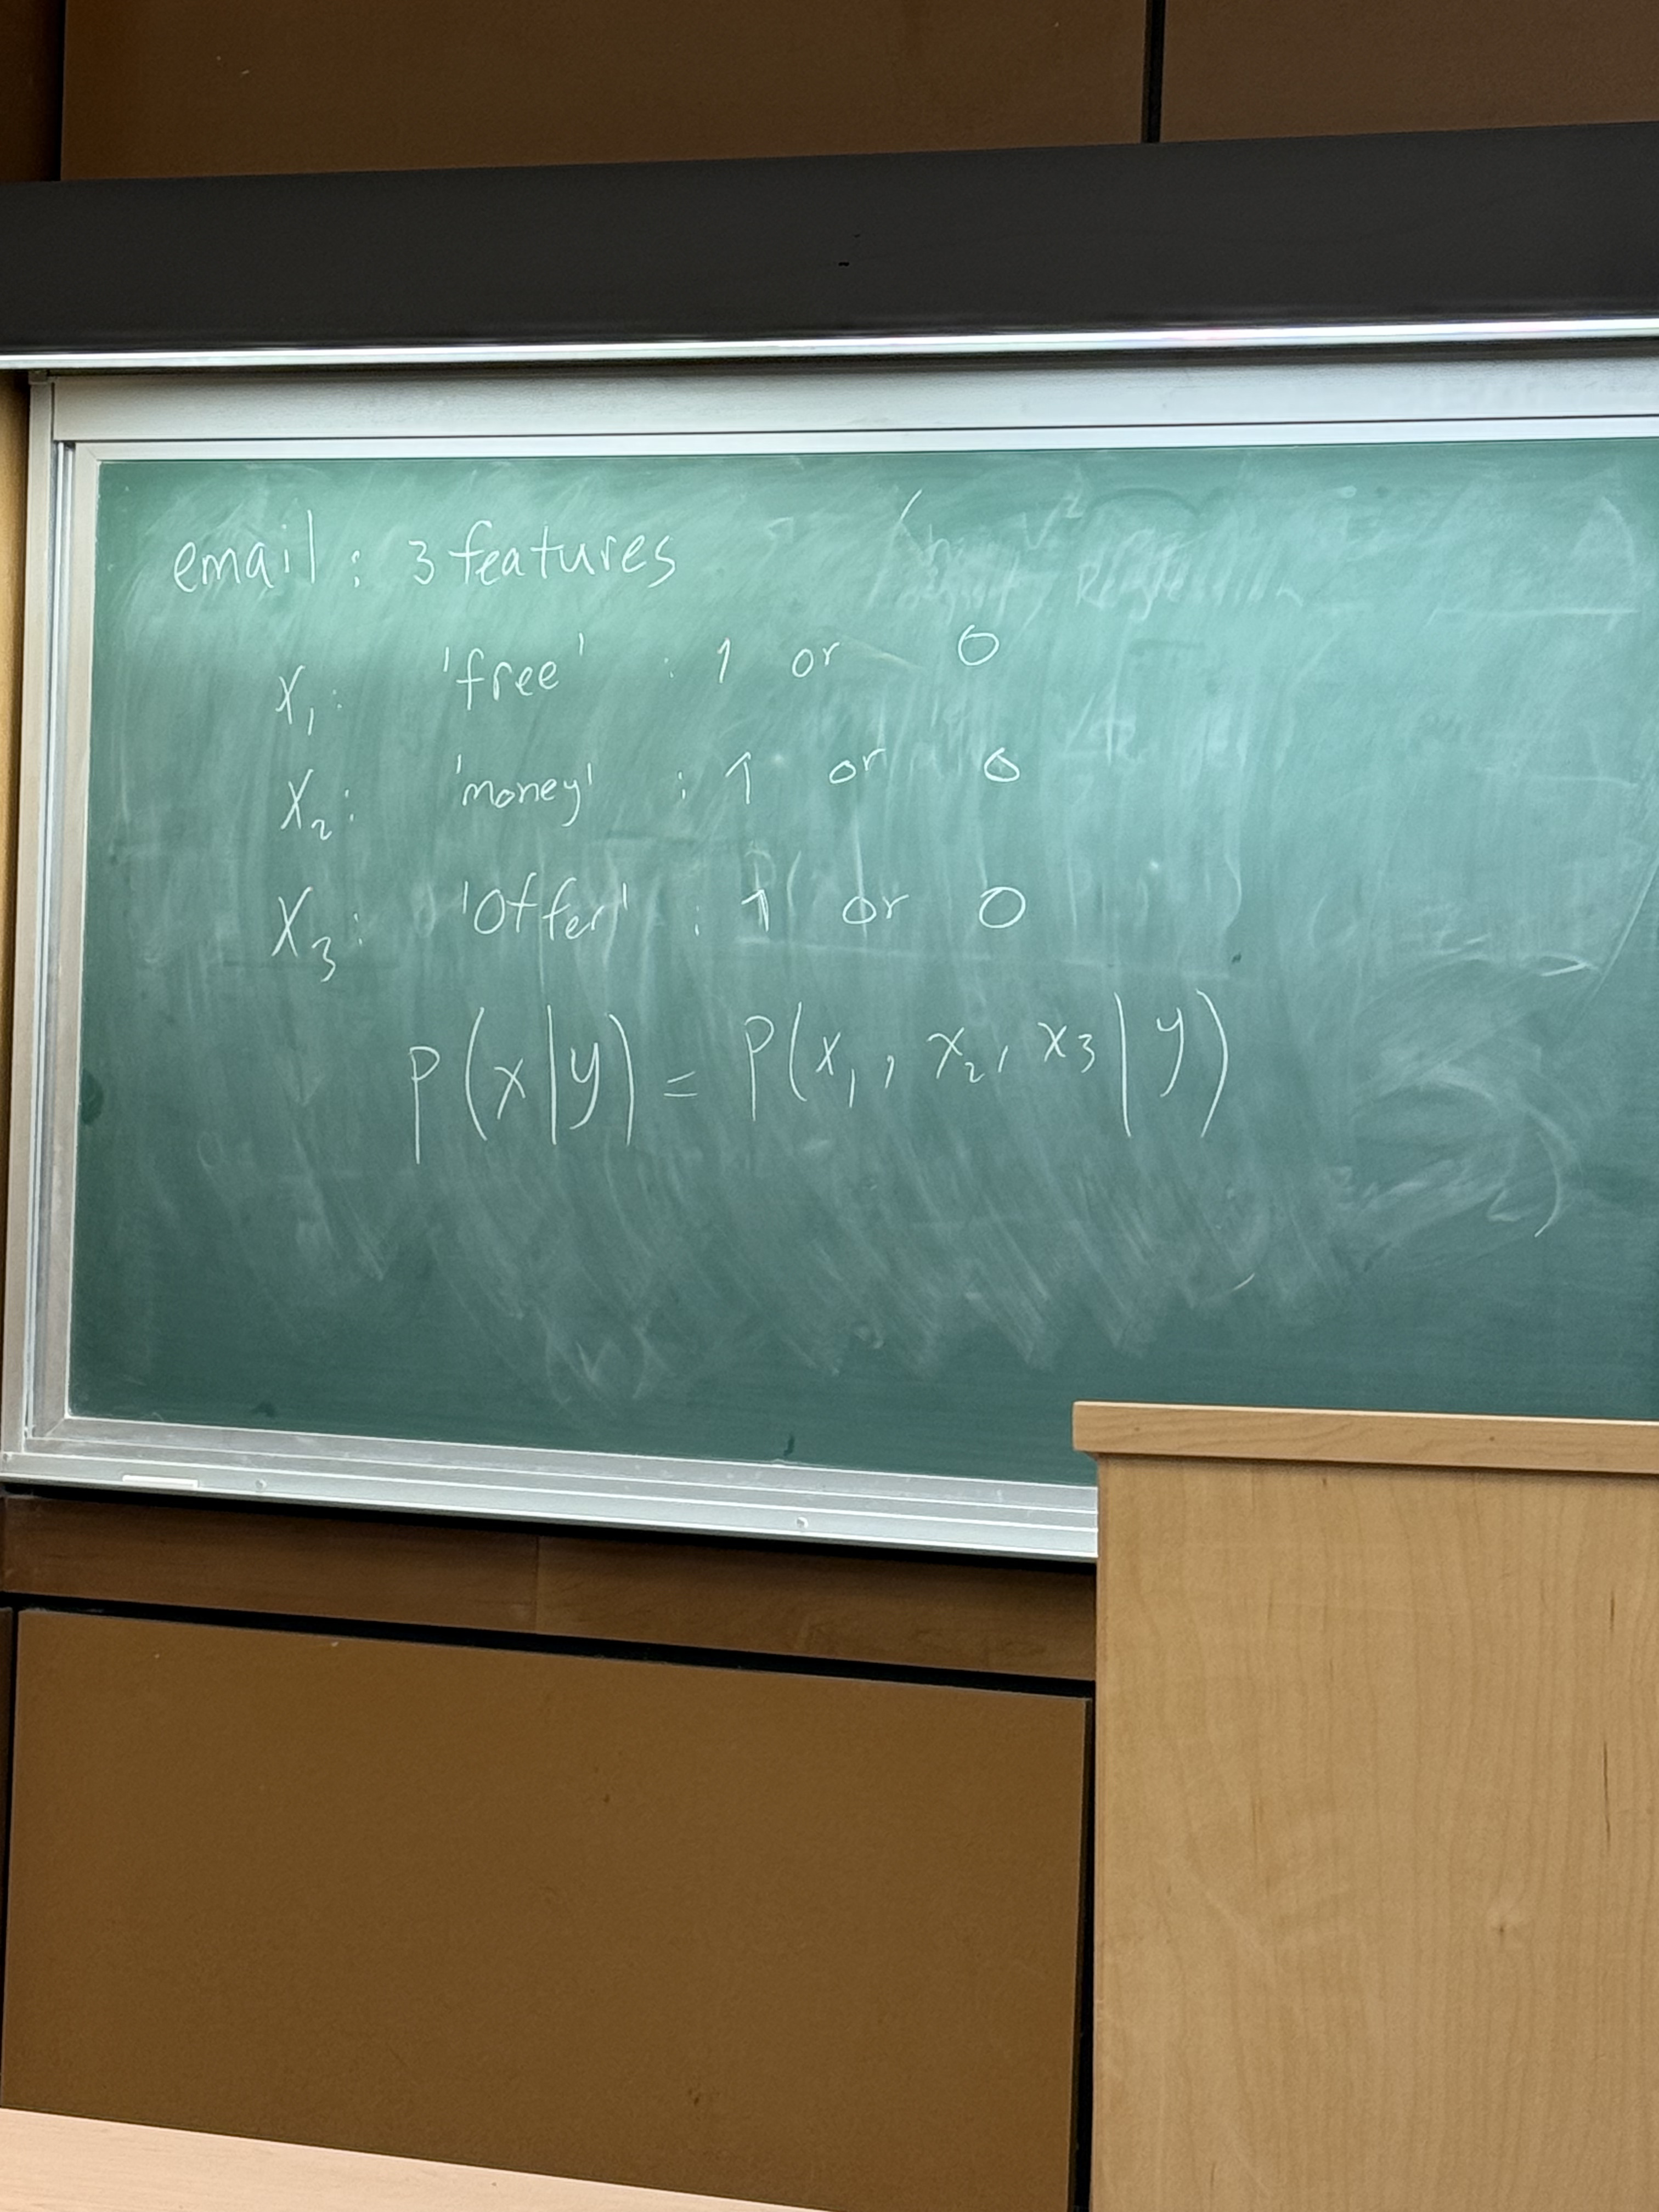 email : 3 features
X₁: 'free' : 1 or 0
X₂: 'money' : 1 or 0
X₃: 'Offer' : 1 or 0
P(x|y) = P(x₁, x₂, x₃ | y)